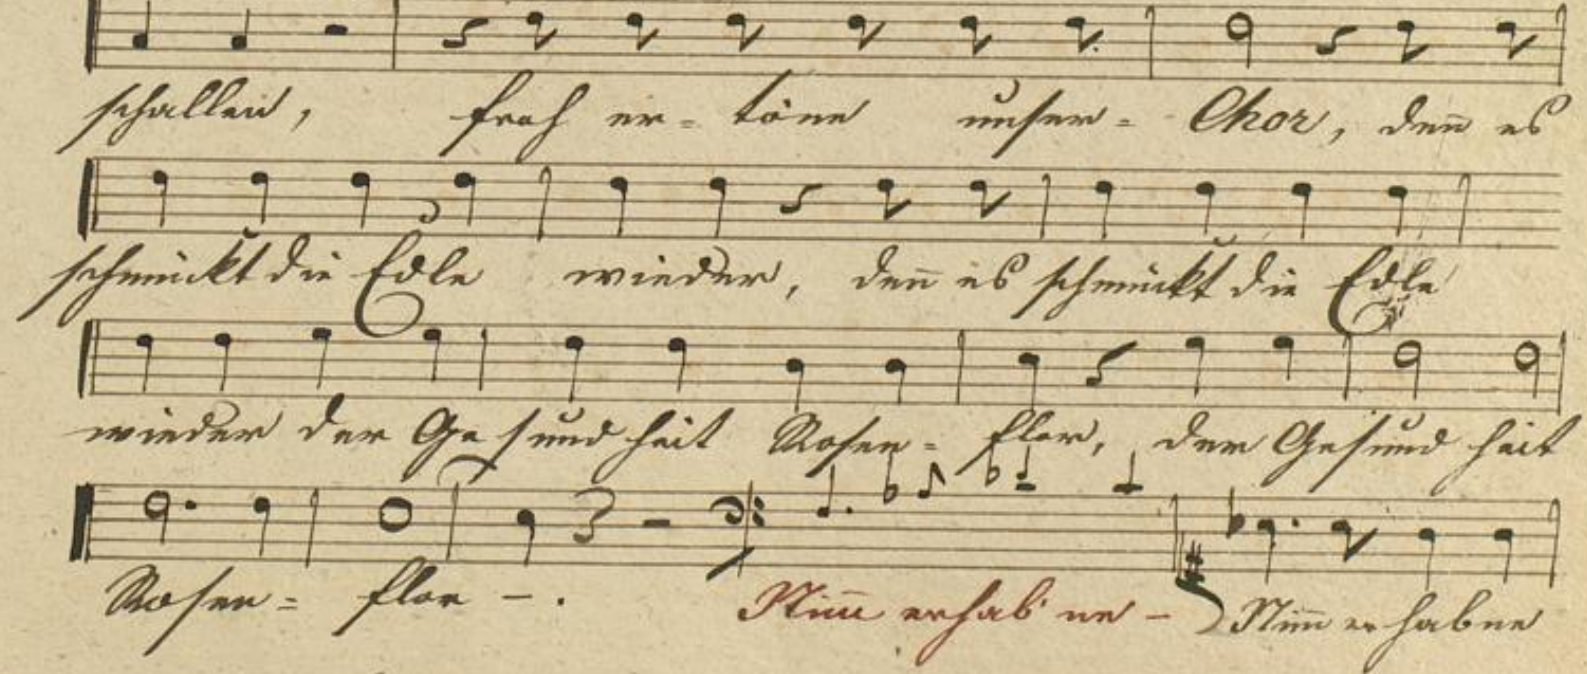 schallen, froh er- töne unser- Chor, den̄ es
schmückt die Edle wieder, den̄ es schmückt die Edle
wieder der Gesundheit Rosen- flor, der Gesundheit
Rosen- flor -. Nim̄ erhab'ne - Nim̄ erhabne